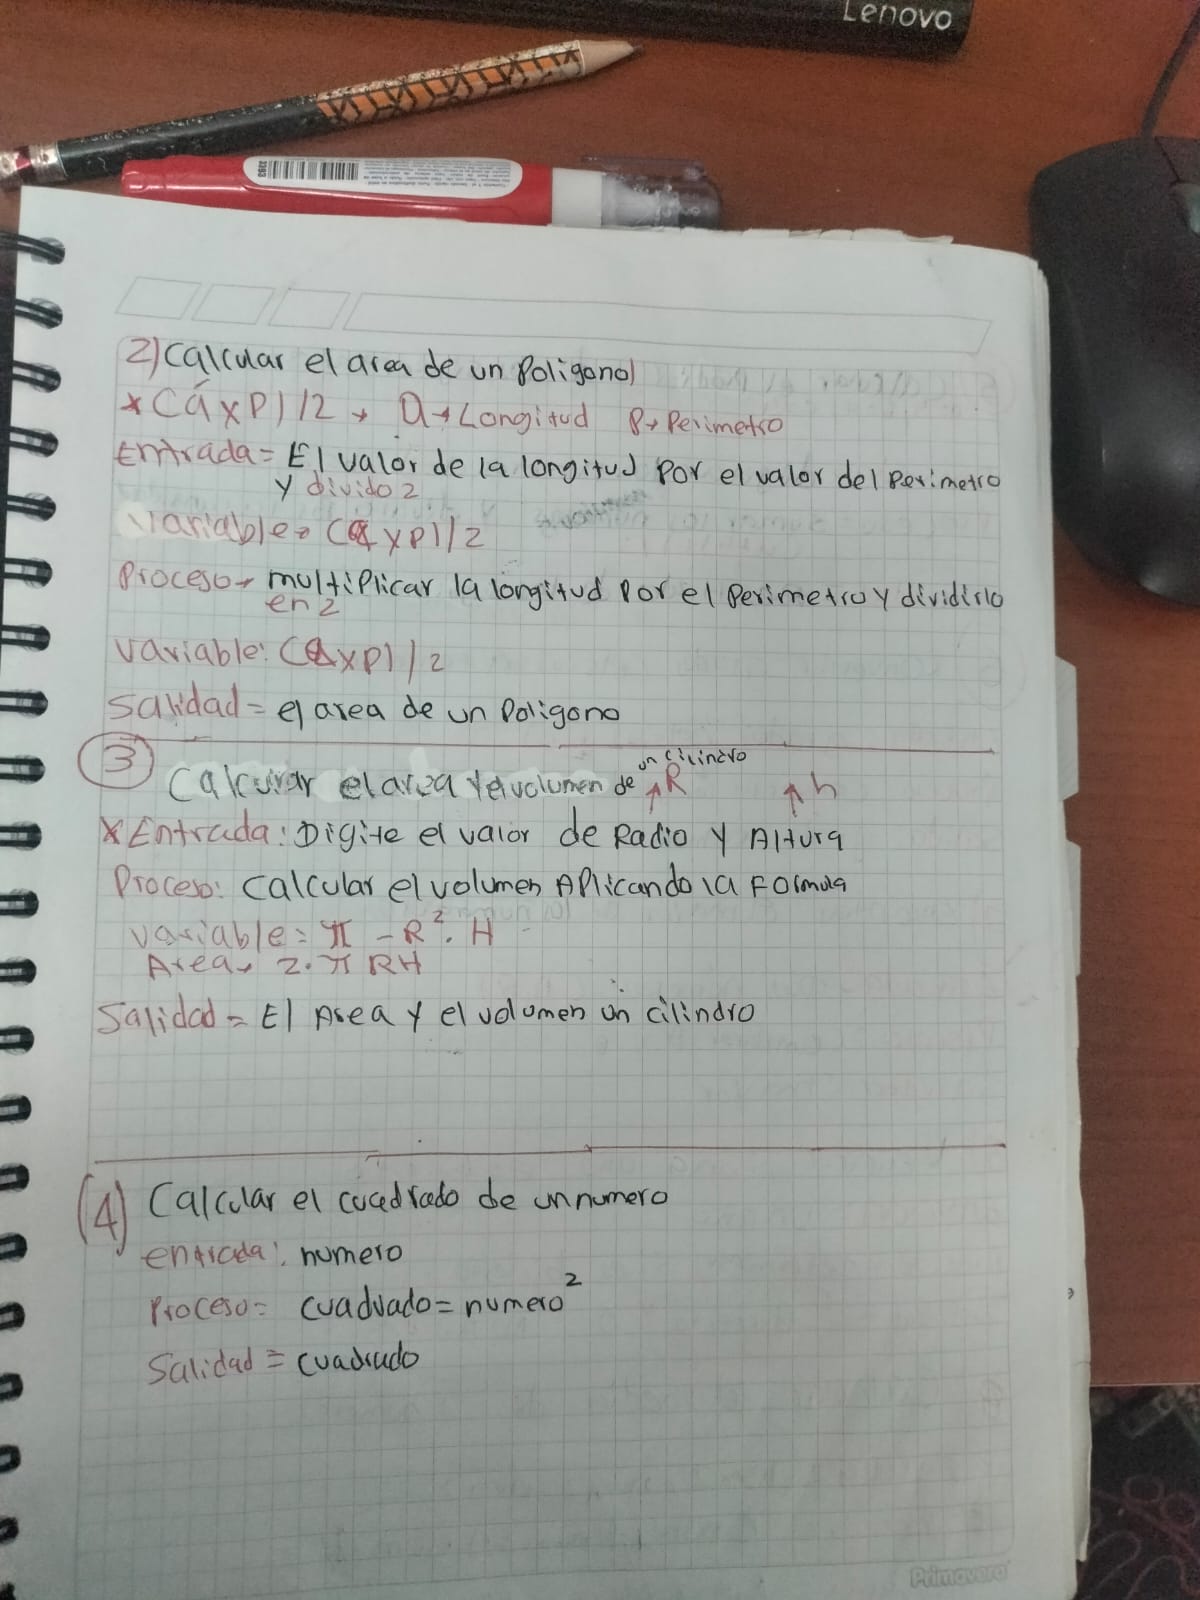 Lenovo
3393
2) Calcular el area de un Poligono)
* (á x P) / 2 → a → Longitud P → Perimetro
Entrada = El valor de la longitud por el valor del Perimetro
y divido 2
Variable → (a x P) / 2
Proceso → multiplicar la longitud por el Perimetro y dividirlo
en 2
Variable: (a x P) / 2
Salidad = el area de un Poligono
3 Calcular el area y el volumen de un cilindro ↑ R ↑ h
* Entrada: Digite el valor de Radio y Altura
Proceso: Calcular el volumen Aplicando la Formula
Variable = π - R². H
Area → 2. π RH
Salidad = El Area y el volumen un cilindro
(4) Calcular el cuadrado de un numero
entrada: numero
Proceso = cuadrado = numero²
Salidad = cuadrado
Primavera